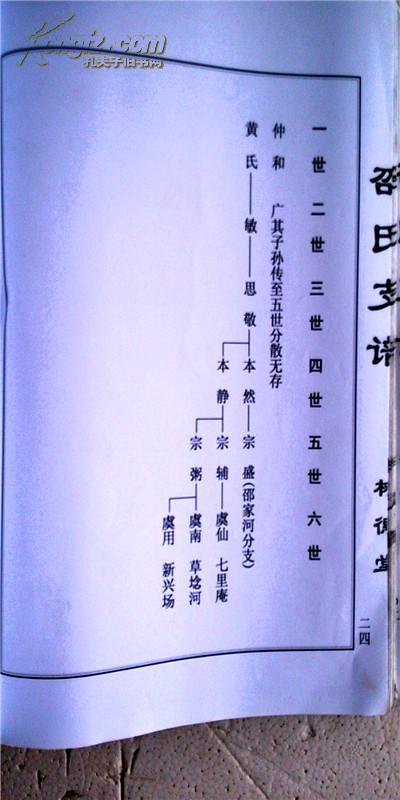 Kongfz.com
孔夫子旧书网
邵氏支谱
一世 二世 三世 四世 五世 六世
仲和 广其子孙传至五世分散无存
黄氏——敏——思敬——本然——宗盛(邵家河分支)
本静——宗辅——虞仙 七里庵
宗粥——虞南 草埝河
虞用 新兴场
二四